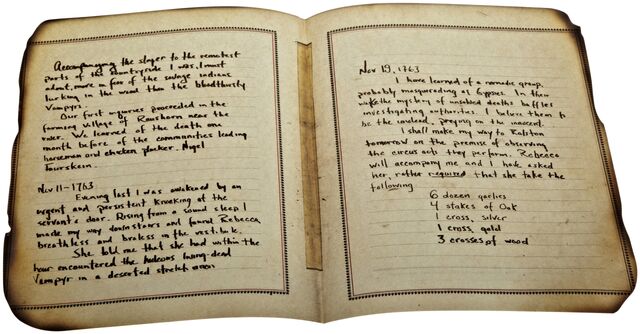 Accompanying the slayer to the remotest
parts of the countryside I was, I must
admit, more in fear of the savage indians
lurking in the wood than the bloodthirsty
Vampyr.
Our first inquiries proceeded in the
farming village of near the
river. We learned of the death one
month before of the communities leading
horseman and chicken plucker. Nigel
Nov 11-1763
Evening last I was awakened by an
urgent and persistent knocking at the
servant's door. Rising from a sound sleep I
made my way downstairs and found Rebecca
breathless and broken in the vestibule.
She told me that she had within the
hour encountered the hideous living-dead
Vampyr in a deserted stretch
Nov 19, 1763
I have learned of a nomadic group,
probably masquerading as Gypses. In their
wake the mystery of unsolved deaths baffles
investigating authorities. I believe them to
be the undead, preying on the innocent.
I shall make my way to Ralston
tomorrow on the premise of observing
the circus acts they perform. Rebecca
will accompany me and I have asked
her, rather required that she take the
following
6 dozen garlics
4 stakes of Oak
1 cross, silver
1 cross, gold
3 crosses of wood